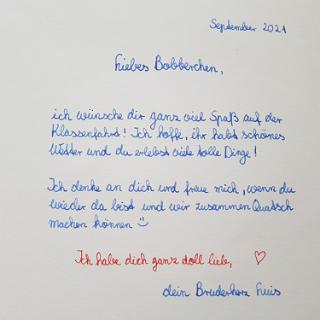 September 2021
Liebes Bobberchen,
ich wünsche dir ganz viel Spaß auf der
Klassenfahrt! Ich hoffe, ihr habt schönes
Wetter und du erlebst viele tolle Dinge!
Ich denke an dich und freue mich, wenn du
wieder da bist und wir zusammen Quatsch
machen können
Ich habe dich ganz doll lieb,
dein Bruderherz Luis